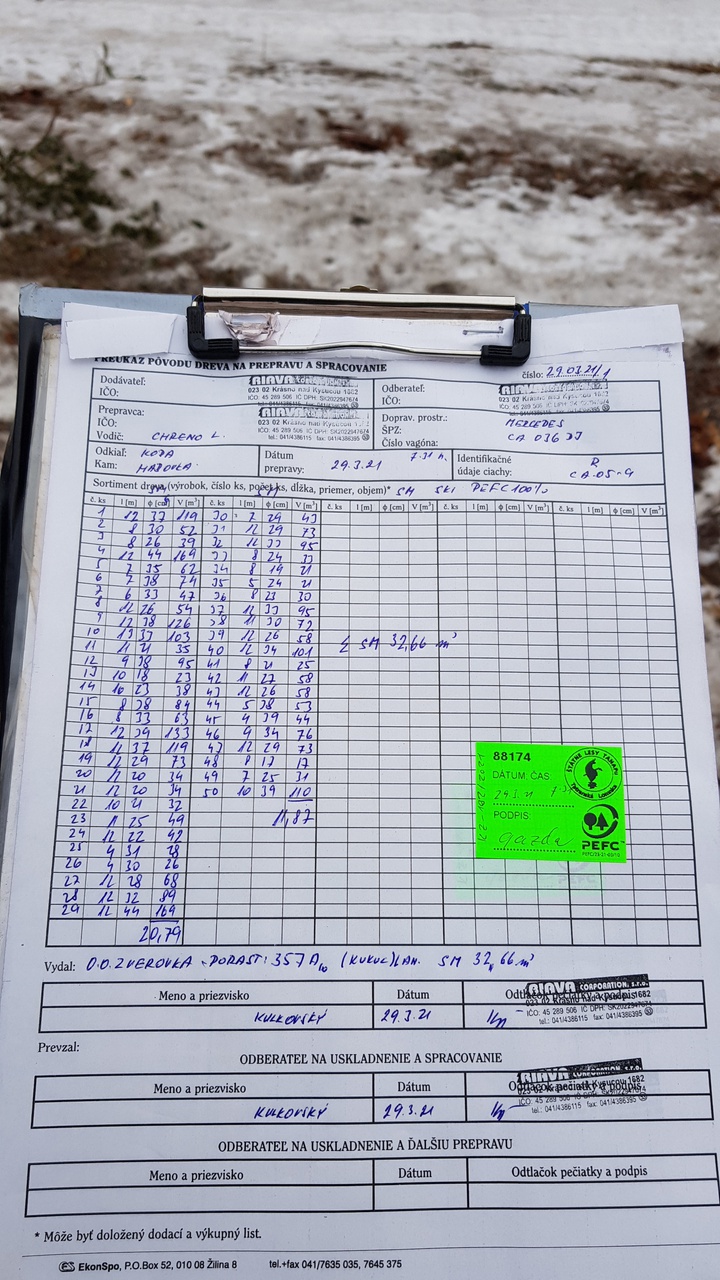 PREUKAZ PÔVODU DREVA NA PREPRAVU A SPRACOVANIE
číslo: 29.03.21/1
Dodávateľ:
IČO:
RIAVA
023 02 Krásno nad Kysucou 1682
IČO: 45 289 506 IČ DPH: SK2022947674
tel.: 041/4386115 fax: 041/4386395
Odberateľ:
IČO:
RIAVA CORPORATION, s.r.o.
023 02 Krásno nad Kysucou 1682
IČO: 45 289 506 IČ DPH: SK2022947674
Prepravca:
IČO:
Vodič: CHRENO L.
RIAVA
023 02 Krásno nad Kysucou
IČO: 45 289 506 IČ DPH: SK2022947674
tel.: 041/4386115 fax: 041/4386395
Doprav. prostr.: MERCEDES
ŠPZ: CA 036 DJ
Číslo vagóna:
Odkiaľ:
Kam:
Dátum
prepravy: 29.3.21
Identifikačné
údaje ciachy: R
CA-05-9
Sortiment dreva (výrobok, číslo ks, počet ks, dĺžka, priemer, objem)* SM SKI PEFC 100%
č. ks l [m] φ [cm] V [m³] č. ks l [m] φ [cm] V [m³] č. ks l [m] φ [cm] V [m³] č. ks l [m] φ [cm] V [m³] č. ks l [m] φ [cm] V [m³]
1 12 37 119 30 7 29 43
2 8 30 52 31 12 29 73
3 8 26 39 32 12 33 95
4 12 44 169 33 8 24 33
5 7 35 62 34 8 19 21
6 7 38 74 35 5 24 21
7 6 33 47 36 8 23 30
8 12 26 54 37 12 33 95
9 12 38 126 38 11 30 72
10 13 33 103 39 12 26 58
11 11 21 35 40 12 34 101
Σ SM 32,66 m³
12 9 38 95 41 8 21 25
13 10 18 23 42 11 27 58
14 16 23 38 43 12 26 58
15 8 38 84 44 5 38 53
16 8 33 63 45 4 39 44
17 12 39 133 46 9 34 76
18 11 37 119 47 12 29 73
19 12 29 73 48 8 17 17
20 12 20 34 49 7 25 31
21 12 20 34 50 10 39 110
22 10 21 32
23 11 25 49 11,87
24 12 22 42
25 4 31 28
26 4 30 26
27 12 28 68
28 12 32 89
29 12 44 169
20,79
88174
DÁTUM ČAS
29.3.21
PODPIS
gazda
ŠTÁTNE LESY TANAPU
Tatranská Lomnica
PEFC™
Vydal: O.O. ZVEROVKA - PORAST: 357A SM 32,66 m³
Meno a priezvisko Dátum Odtlačok pečiatky a podpis
KULKOVSKÝ 29.3.21
RIAVA CORPORATION, s.r.o.
023 02 Krásno nad Kysucou 1682
IČO: 45 289 506 IČ DPH: SK2022947674
tel.: 041/4386115 fax: 041/4386395
Prevzal:
ODBERATEĽ NA USKLADNENIE A SPRACOVANIE
Meno a priezvisko Dátum Odtlačok pečiatky a podpis
KULKOVSKÝ 29.3.21
RIAVA CORPORATION, s.r.o.
023 02 Krásno nad Kysucou 1682
IČO: 45 289 506 IČ DPH: SK2022947674
tel.: 041/4386115 fax: 041/4386395
ODBERATEĽ NA USKLADNENIE A ĎALŠIU PREPRAVU
Meno a priezvisko Dátum Odtlačok pečiatky a podpis
* Môže byť doložený dodací a výkupný list.
ES EkonSpo, P.O.Box 52, 010 08 Žilina 8 tel.+fax 041/7635 035, 7645 375